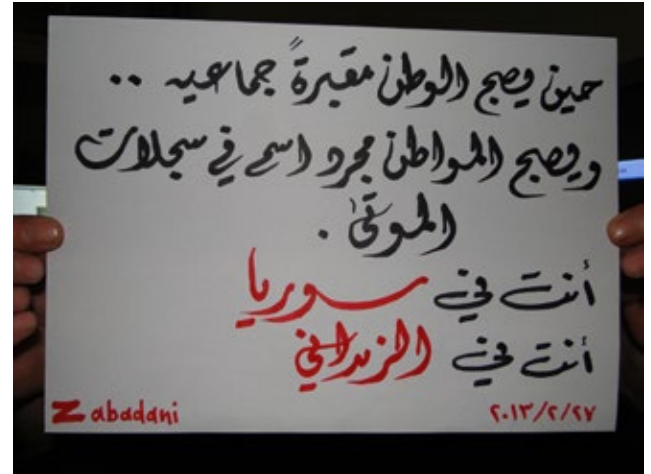 حين يصبح الوطن مقبرةً جماعيه ..
ويصبح المواطن مجرد اسم في سجلات
الموتى .
أنت في سوريا
أنت في الزبداني
Zabadani ٢٠١٣/٢/٢٧